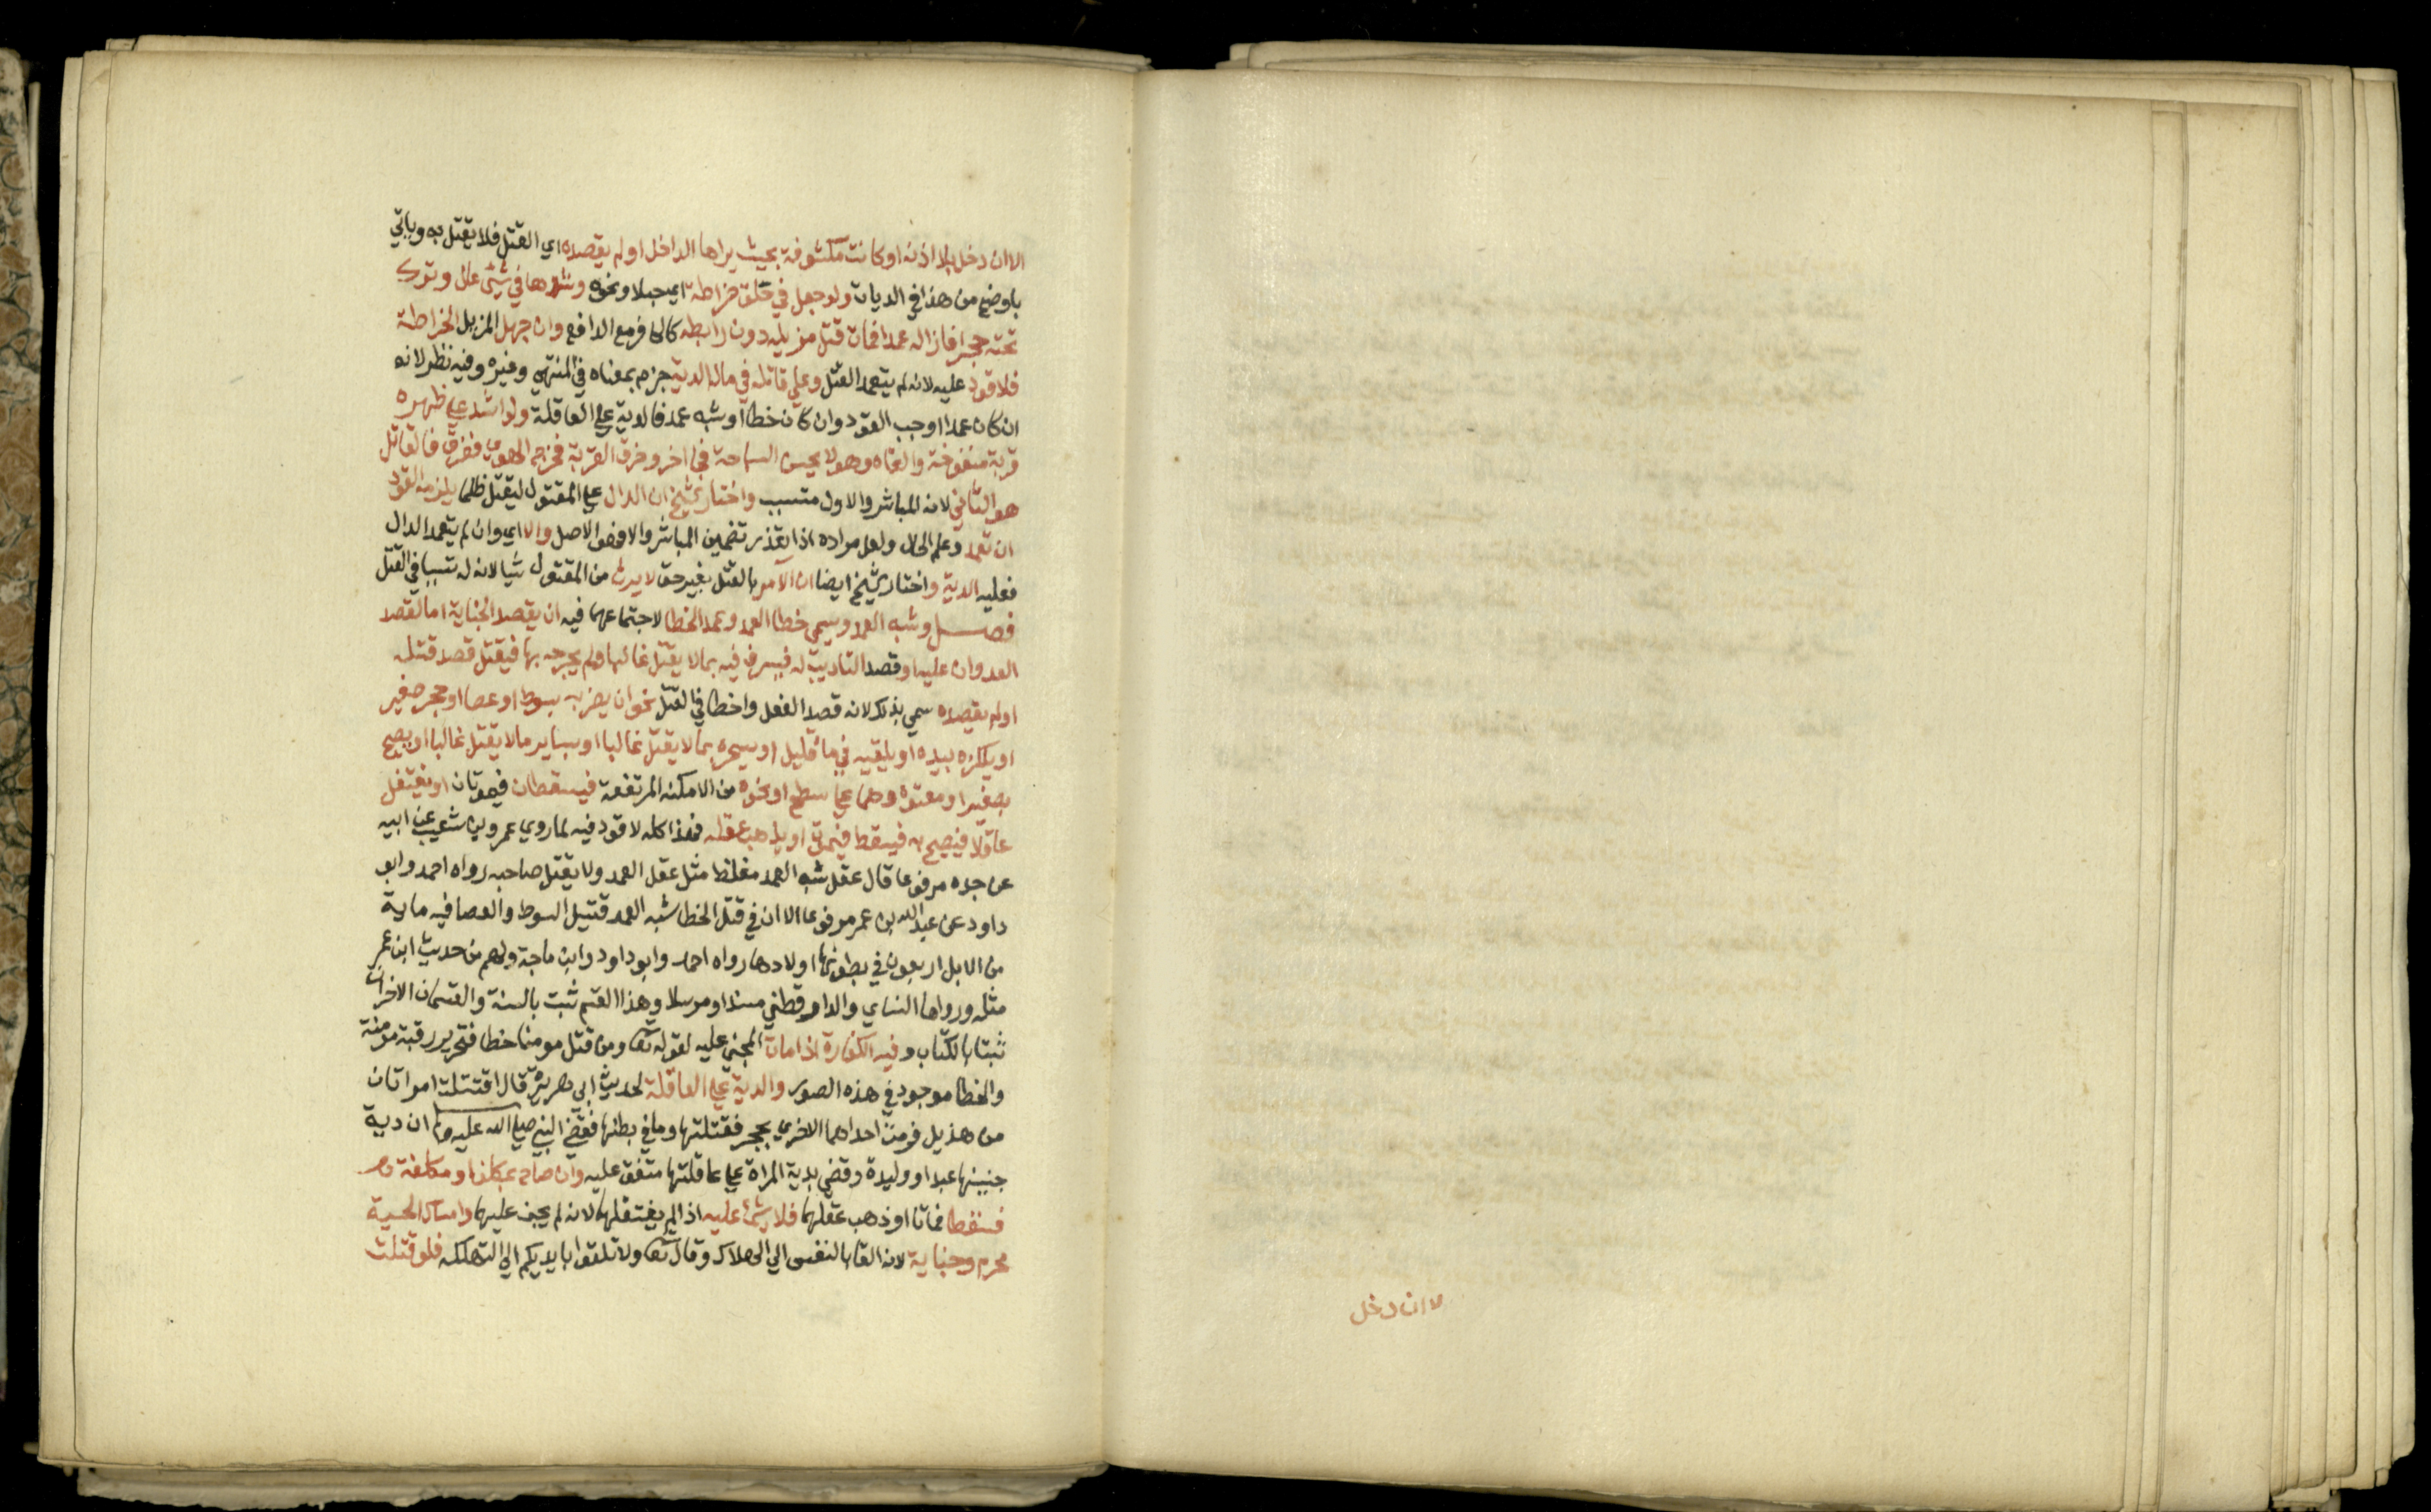 الا ان دخل بلا اذنه او كانت مكشوفة بحيث يراها الداخل او لم يقصده اي القتل فلا يقتل به وياتي
باوضح من هذا في الديات ولو جعل في حلق خراطة اي حبلا ونحوه وشدها في شيئ عال وترك
تحته حجرا فازاله عمدا فمات قتل مزيله دون رابطه كالحافر مع الدافع وان جهل المزيل الخراطة
فلا قود عليه لانه لم يتعمد القتل وعلي قاتله في ماله الدية جزم بمعناه في المنتهي وغيره وفيه نظر لانه
ان كان عمدا اوجب القود وان كان خطا او شبه عمد فالدية علي العاقلة ولو شد علي ظهره
قربة منفوخة والقاه وهو لا يحسن السباحة فجا اخر وخرق القربة فخرج الهوي فغرق فالقاتل
هو الثاني لانه المباشر والاول متسبب واختار الشيخ ان الدال علي المقتول ليقتل ظلما يلزمه القود
ان تعمد وعلم الحال ولعل مراده اذا تعذر تضمين المباشر والا فهو الاصل والا اي وان لم يتعمد الدال
فعليه الدية واختار الشيخ ايضا ان الامر بالقتل بغير حق لا يرث من المقتول شيا لانه له تسببا في القتل
فصل وشبه العمد ويسمي خطا العمد وعمد الخطا لاجتماعهما فيه ان يقصد الجناية اما لقصد
العدوان عليه او قصد التاديب له فيسرف فيه بما لا يقتل غالبا ولم يجرحه بها فيقتل قصد قتله
او لم يقصده سمي بذلك لانه قصد الفعل واخطا في القتل نحو ان يضربه بسوط او عصا او حجر صغير
او يلكزه بيده او يلقيه في ماء قليل او يسحره بما لا يقتل غالبا او بساير ما لا يقتل غالبا او يصيح
بصغير او معتوه وهما علي سطح او نحوه من الامكنه المرتفعة فيسقطان فيموتان او يغتفل
عاقلا فيصيح به فيسقط فيموت او يذهب عقله فهذا كله لا قود فيه لما روي عمرو بن شعيب عن ابيه
عن جده مرفوعا قال عقل شبه العمد مغلظ مثل عقل العمد ولا يقتل صاحبه رواه احمد وابو
داود عن عبد الله بن عمر مرفوعا الا ان في قتل الخطا شبه العمد قتيل السوط والعصا فيه ماية
من الابل اربعون في بطونها اولادها رواه احمد وابو داود وابن ماجة ولهم من حديث ابن عمر
مثله ورواهما النساي والدارقطني مسندا ومرسلا وهذا القسم ثبت بالسنة والقسمان الاخران
ثبتا بالكتاب وفيه الكفارة اذا مات المجني عليه لقوله تعا ومن قتل مومنا خطا فتحرير رقبة مومنة
والخطا موجود في هذه الصور والدية علي العاقلة لحديث ابي هريرة قال اقتتلت امراتان
من هذيل فرمت احداهما الاخري بحجر فقتلتها وما في بطنها فقضي النبي صلي الله عليه وسلم ان دية
جنينها عبد او وليدة وقضي بدية المراة علي عاقلتها متفق عليه وان صاح بمكلف او مكلفة
فسقطا فماتا او ذهب عقلهما فلا شئ عليه اذا لم يغتفلهما لانه لم يجن عليهما وامساك الحية
محرم وجناية لانه القا بالنفس الي الهلاك وقال تعا ولا تلقوا بايديكم الي التهلكه فلو قتلت
لا ان دخل